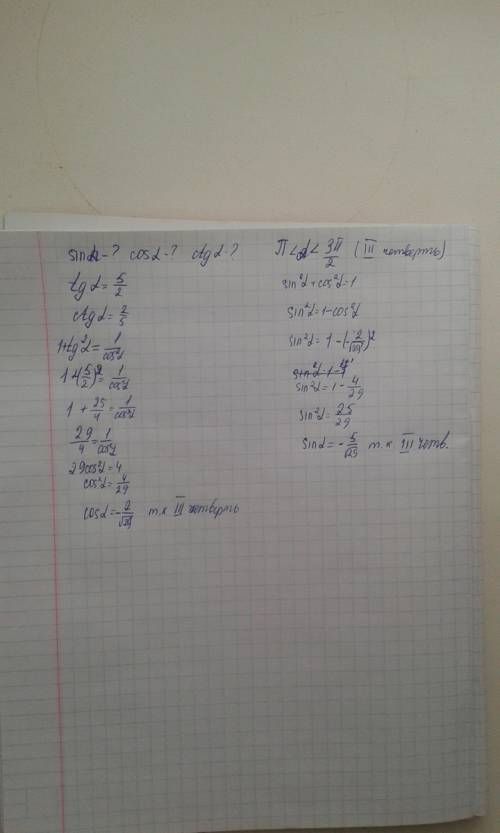 sinα-? cosα-? ctgα-? π<α<3π/2 (III четверть)
tgα=5/2
ctgα=2/5
1+tg²α=1/cos²α
1+(5/2)²=1/cos²α
1+25/4=1/cos²α
29/4=1/cos²α
29cos²α=4
cos²α=4/29
cosα=-2/√29 т.к III четверть
sin²α+cos²α=1
sin²α=1-cos²α
sin²α=1-(-2/√29)²
sin²α=1-4/29
sin²α=25/29
sinα=-5/√29 т.к III четв.